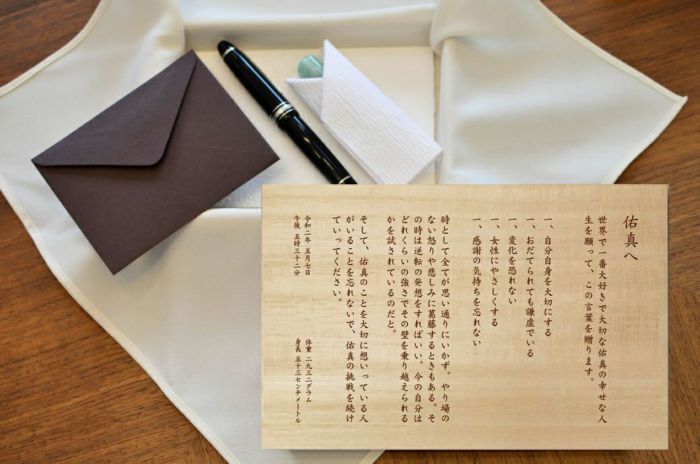 佑真へ
世界で一番大好きで大切な佑真の幸せな人
生を願って、この言葉を贈ります。
一、自分自身を大切にする
一、おだてられても謙虚でいる
一、変化を恐れない
一、女性にやさしくする
一、感謝の気持ちを忘れない
時として全てが思い通りにいかず。やり場の
ない怒りや悲しみに葛藤するときもある。そ
の時は逆転の発想をすればいい。今の自分は
どれくらいの強さでその壁を乗り越えられる
かを試されているのだと。
そして、佑真のことを大切に想いっている人
がいることを忘れないで、佑真の挑戦を続け
ていってください。
体重 二九三二グラム
身長 五十三センチメートル
令和二年 五月七日
午後 五時三十二分